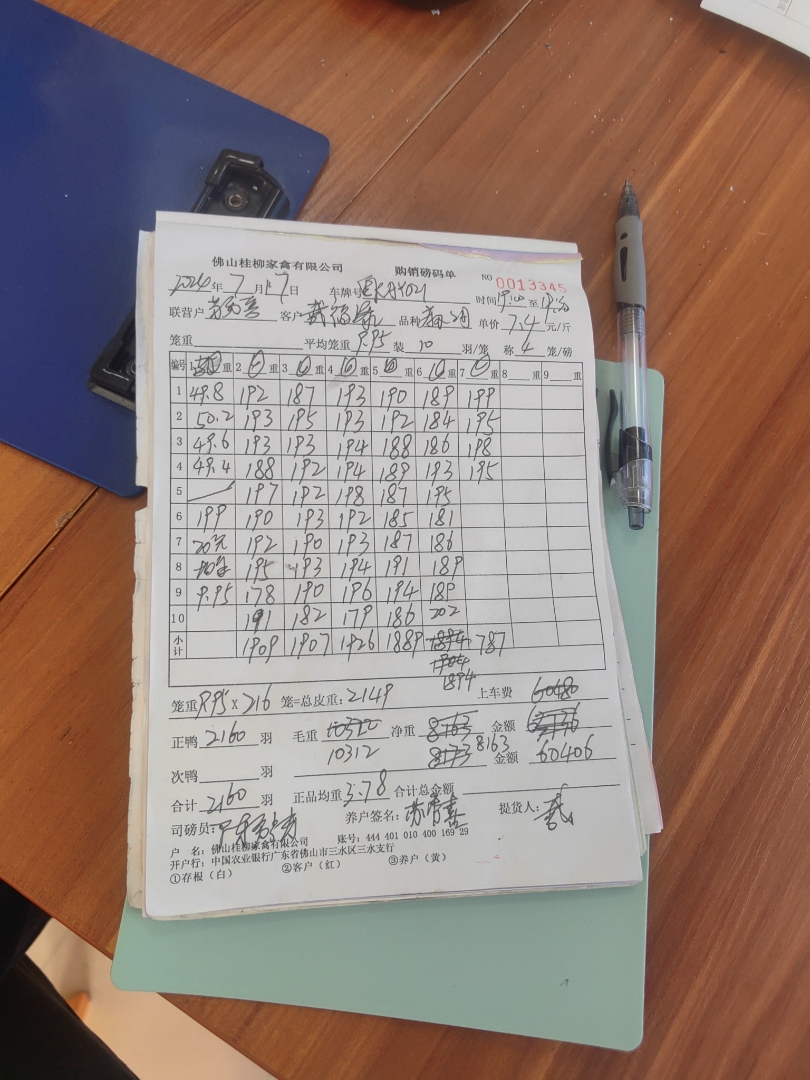 佛山桂柳家禽有限公司 购销磅码单 NO 0013345
2024年 7月 17日 车牌号 时间 至
联营户 客户 品种 单价 7.4 元/斤
笼重 平均笼重 9.95 装 10 羽/笼 称 4 笼/磅
编号 1 重 2 重 3 重 4 重 5 重 6 重 7 重 8 重 9 重
1 49.8 192 187 193 190 189 199
2 50.2 193 195 193 192 184 195
3 49.6 193 193 194 188 186 198
4 49.4 188 192 194 189 193 195
5 197 192 198 187 195
6 199 190 193 192 185 181
7 192 190 193 187 186
8 195 193 194 191 189
9 9.95 178 190 196 194 189
10 191 182 179 186 202
小计 1909 1907 1926 1889 787
1894
笼重 9.95 x 216 笼=总皮重: 2149 上车费 60480
正鸭 2160 羽 毛重 净重 金额
10312 8163
次鸭 羽 金额 60406
合计 2160 羽 正品均重 3.78 合计总金额
司磅员: 养户签名: 提货人:
户 名: 佛山桂柳家禽有限公司 账号: 444 401 010 400 169 29
开户行: 中国农业银行广东省佛山市三水区三水支行
①存根(白) ②客户(红) ③养户(黄)